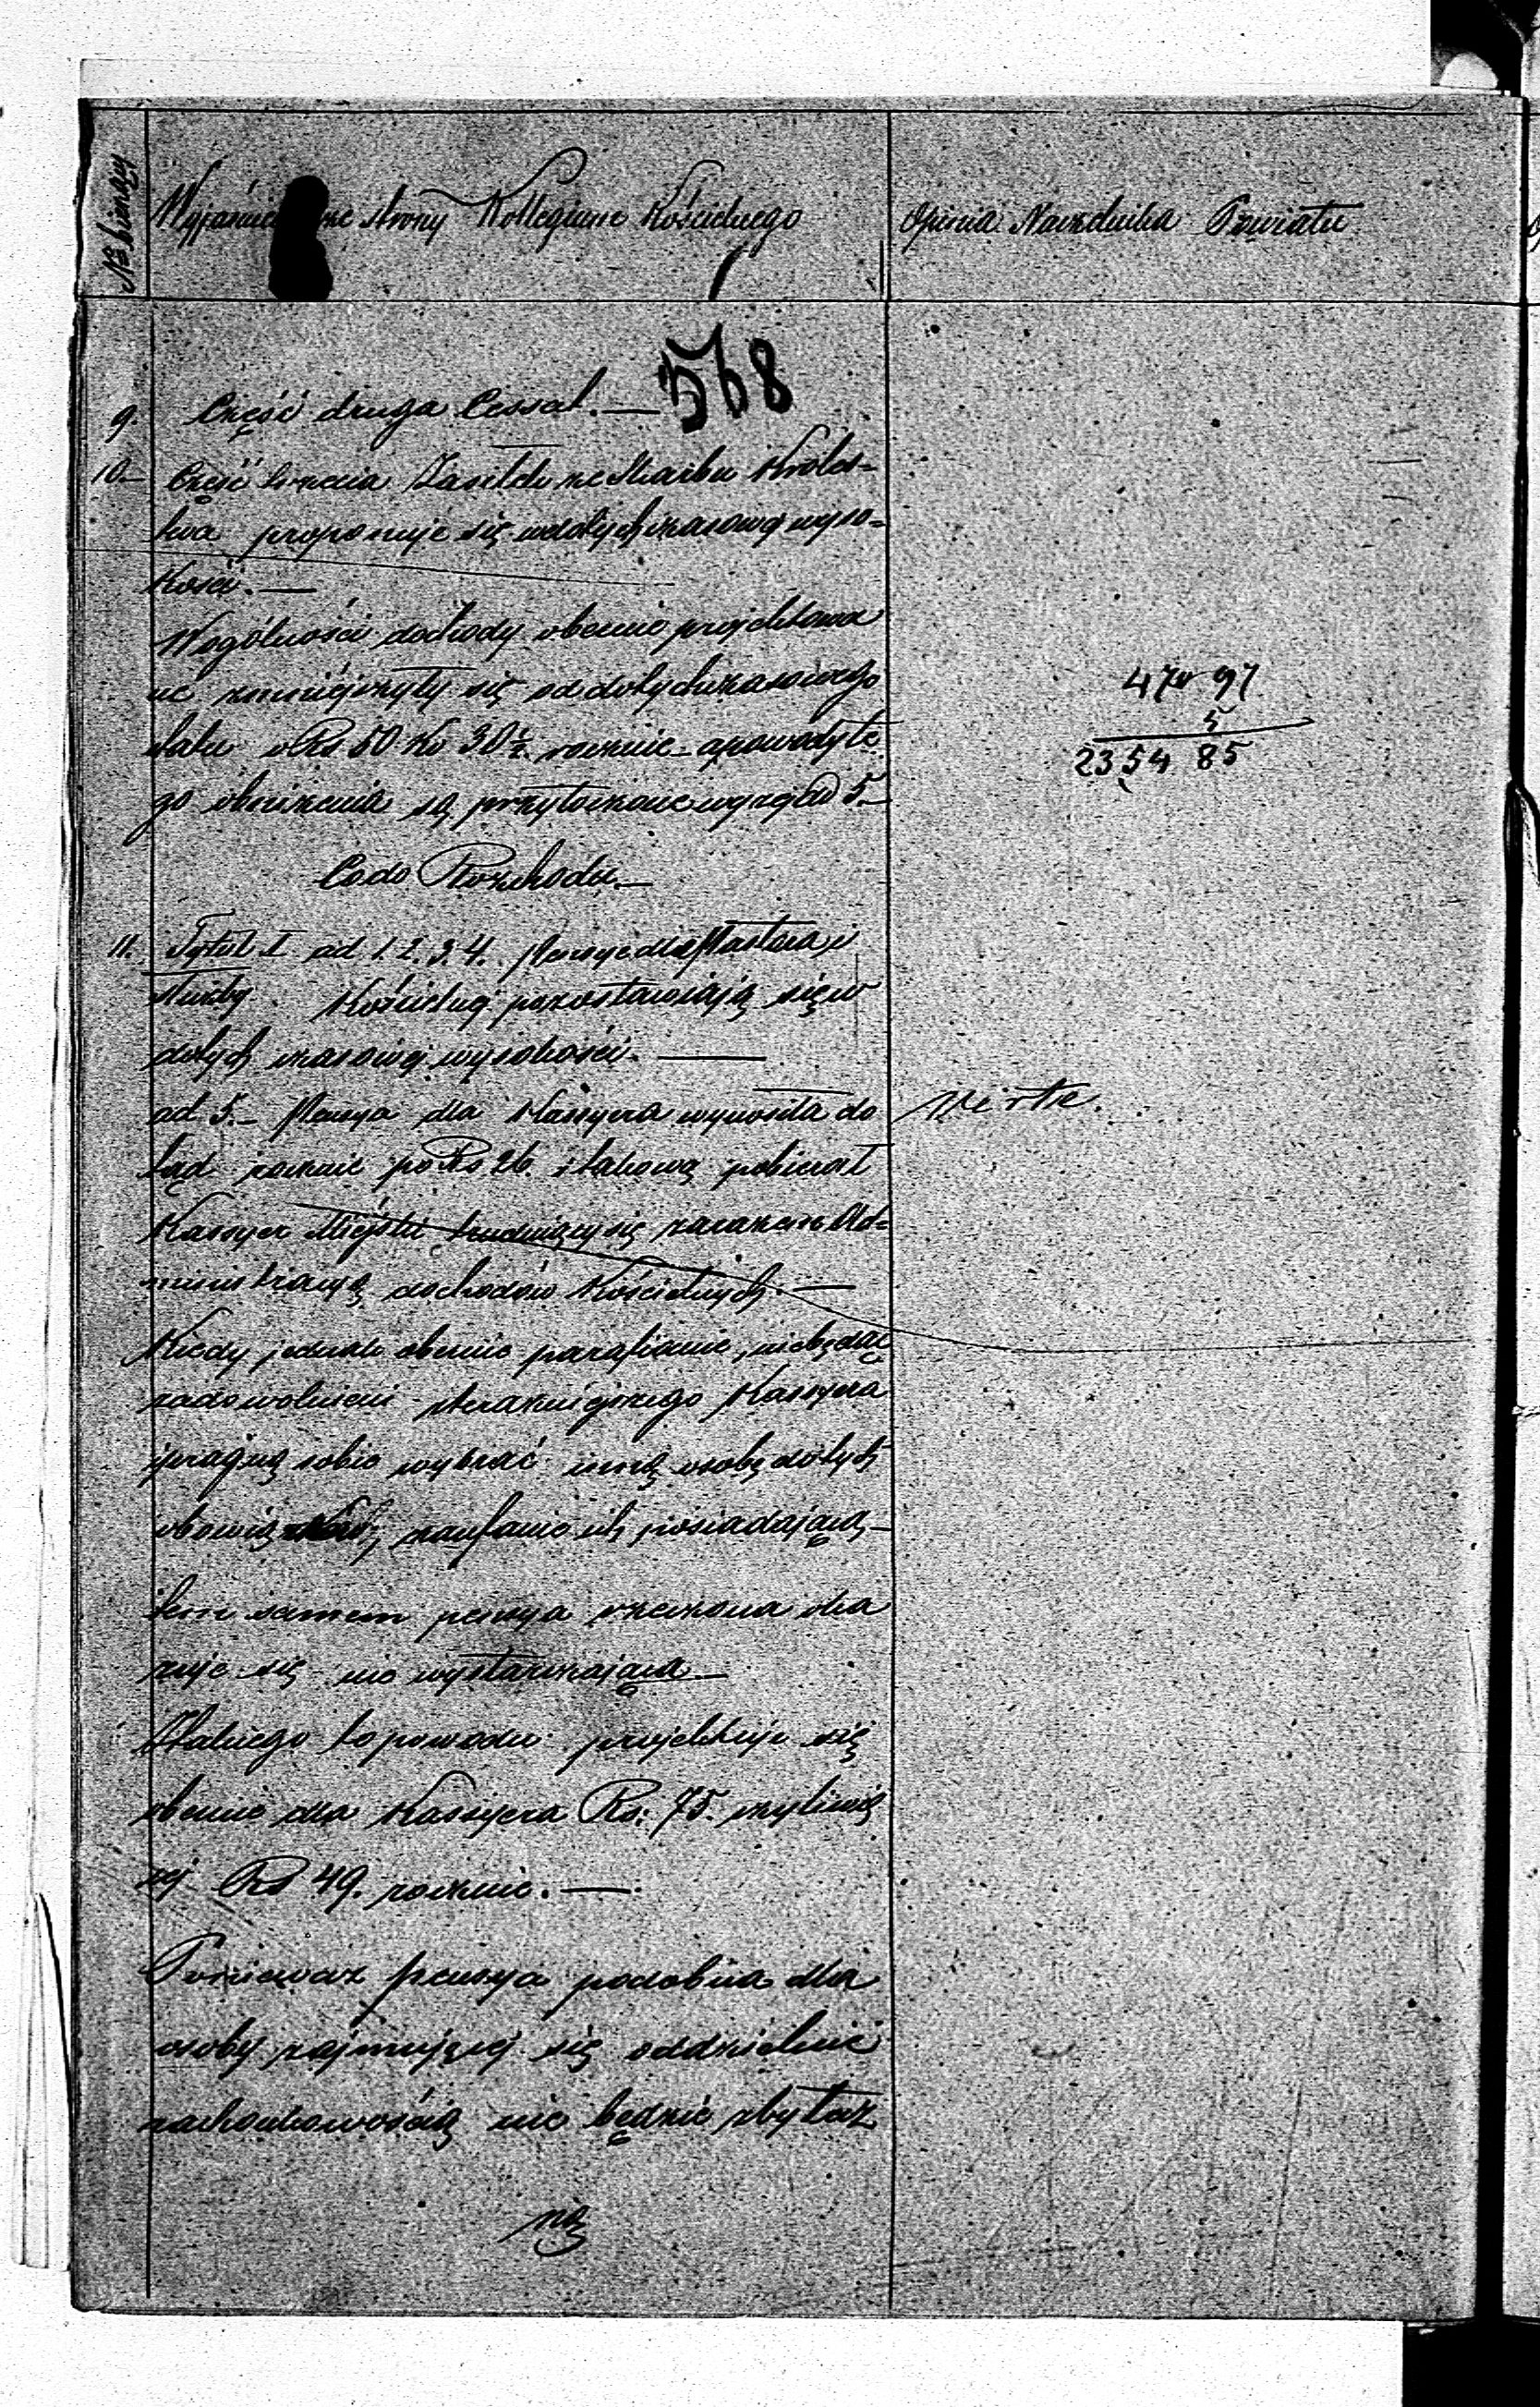 No bieżący
Wyjaśnienie ze strony Kollegium Kościelnego
Opinia Naczelnika Powiatu
568
9. Część druga Cessat. —
10. Część trzecia Zasiłek ze Skarbu Króles=
twa proponuje się w dotychczasowej wyso=
kości. —
W ogólności dochody obecnie projektowa
ne zmniejszyły się od dotychczasowego
etatu o Rs 50 Ko 30½ rocznie a powody te
go obniżenia są przytoczone wyżej ad 5.—
47" 97
5
2354 85
Co do Rozchodu.—
11. Tytuł I ad 1. 2. 3. 4. Pensye dla Pastora i
służby Kościelnej pozostawiają się w
dotychczasowej wysokości. —
ad 5.— Pensya dla Kassyera wynosiła do
tąd rocznie po Rs 26. i takową pobierał
Kassyer Miejski trudniący się zarazem Ad=
ministracyą dochodów Kościelnych. —
Kiedy jednak obecnie parafianie, nie będąc
zadowolnieni z teraźniejszego Kassyera
i pragną sobie wybrać inną osobę do tych
obowiązków, zaufanie ich posiadającą—
tem samem pensya rzeczona oka
zuje się nie wystarczającą—
Z takiego to powodu projektuje się
obecnie dla Kassyera Rs: 75. czyli wię
cej Rs 49. rocznie. —
Ponieważ pensya podobna dla
osoby zajmującej się oddzielnie
rachunkowością nie będzie zbytecz
ną